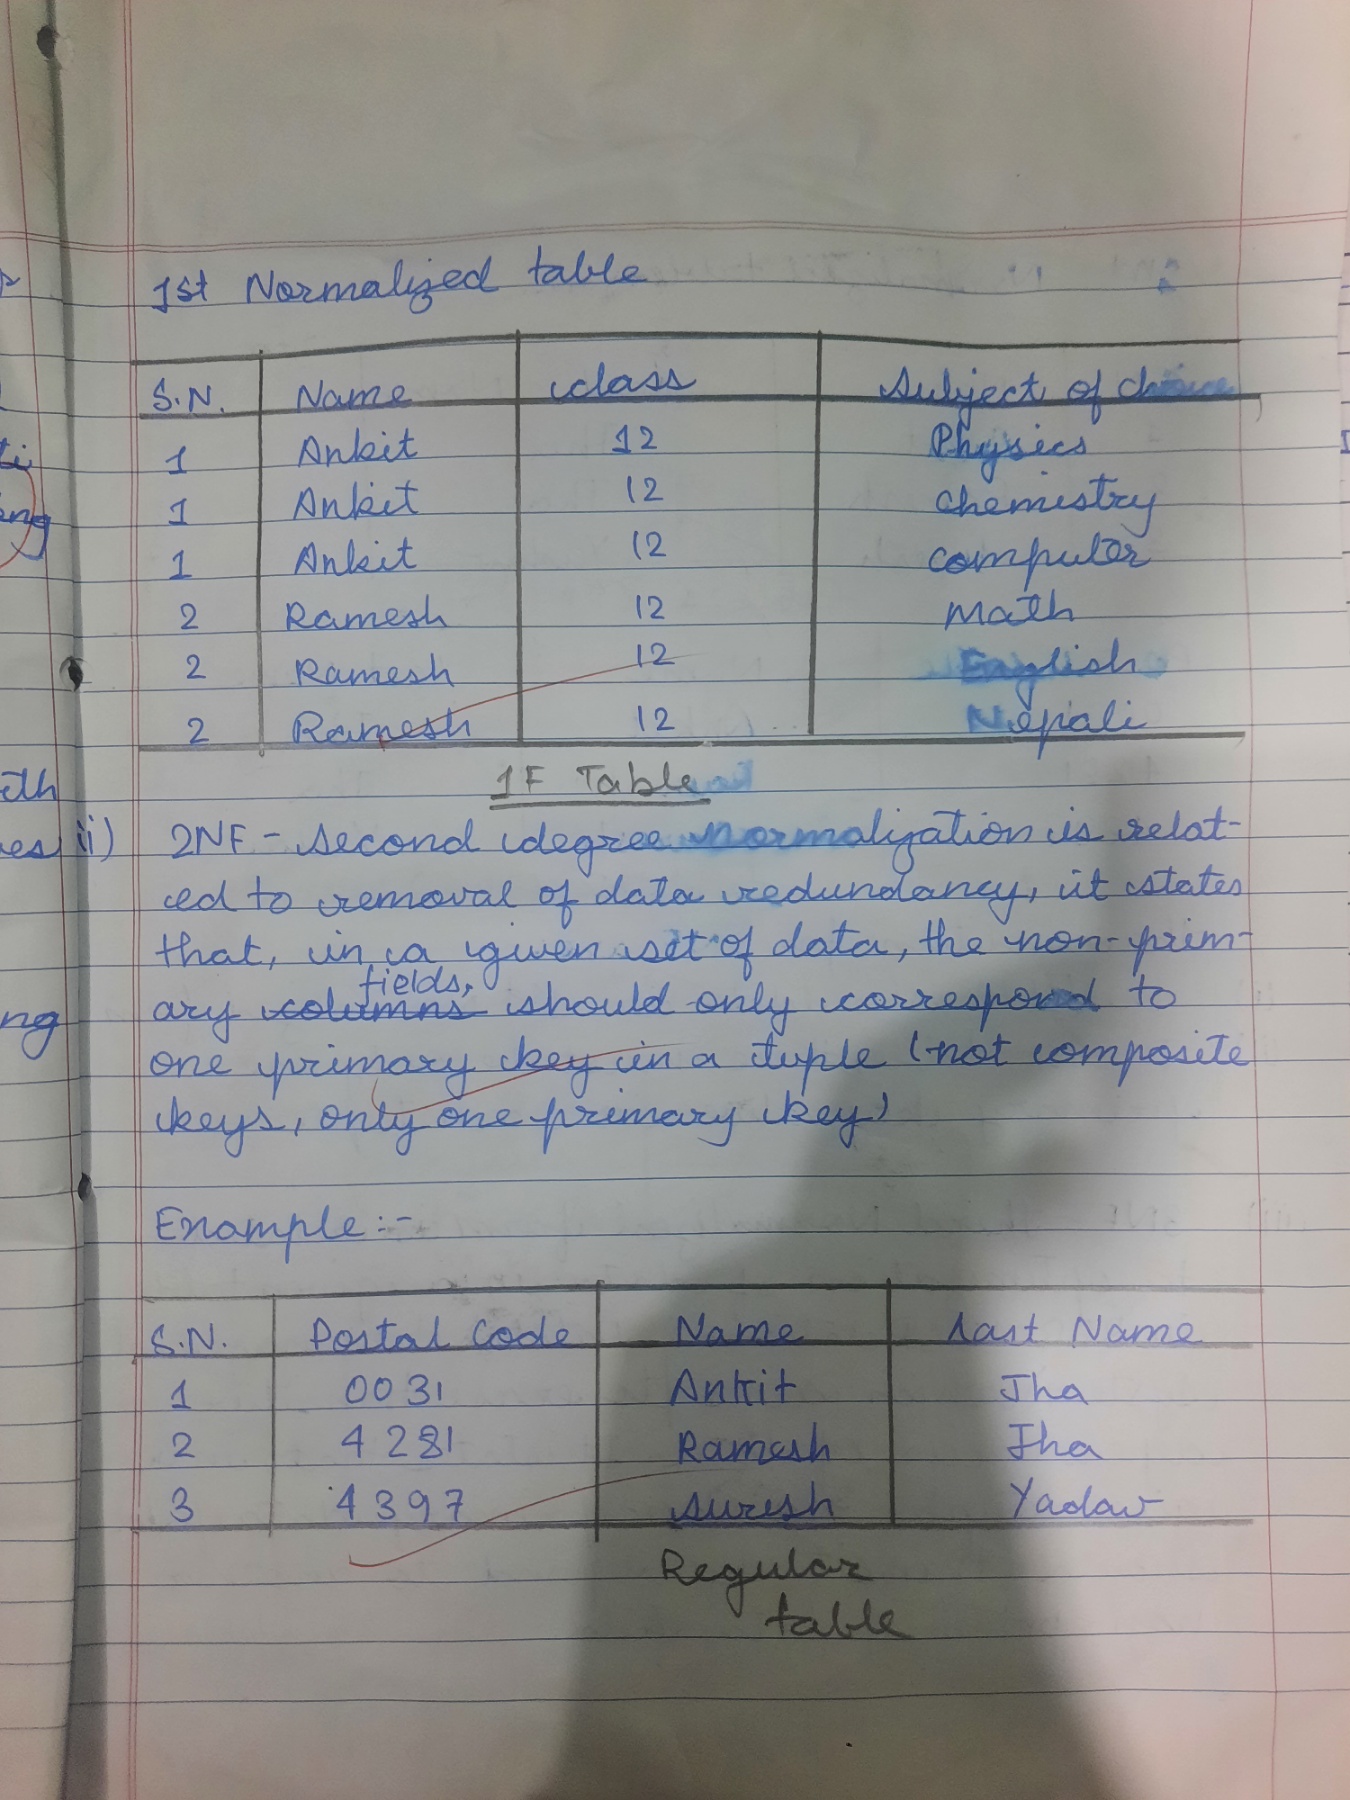 1st Normalized table
S.N. Name class Subject of choice
1 Ankit 12 Physics
1 Ankit 12 chemistry
1 Ankit 12 computer
2 Ramesh 12 Math
2 Ramesh 12 English
2 Ramesh 12 Nepali
1F Table
ii) 2NF - Second degree Normalization is relat-
ed to removal of data redundancy, it states
that, in a given set of data, the non-prim-
fields,
ary columns should only correspond to
one primary key in a tuple (not composite
keys, only one primary key)
Example:-
S.N. Postal Code Name Last Name
1 0031 Ankit Jha
2 4281 Ramesh Jha
3 4397 Suresh Yadav
Regular
table